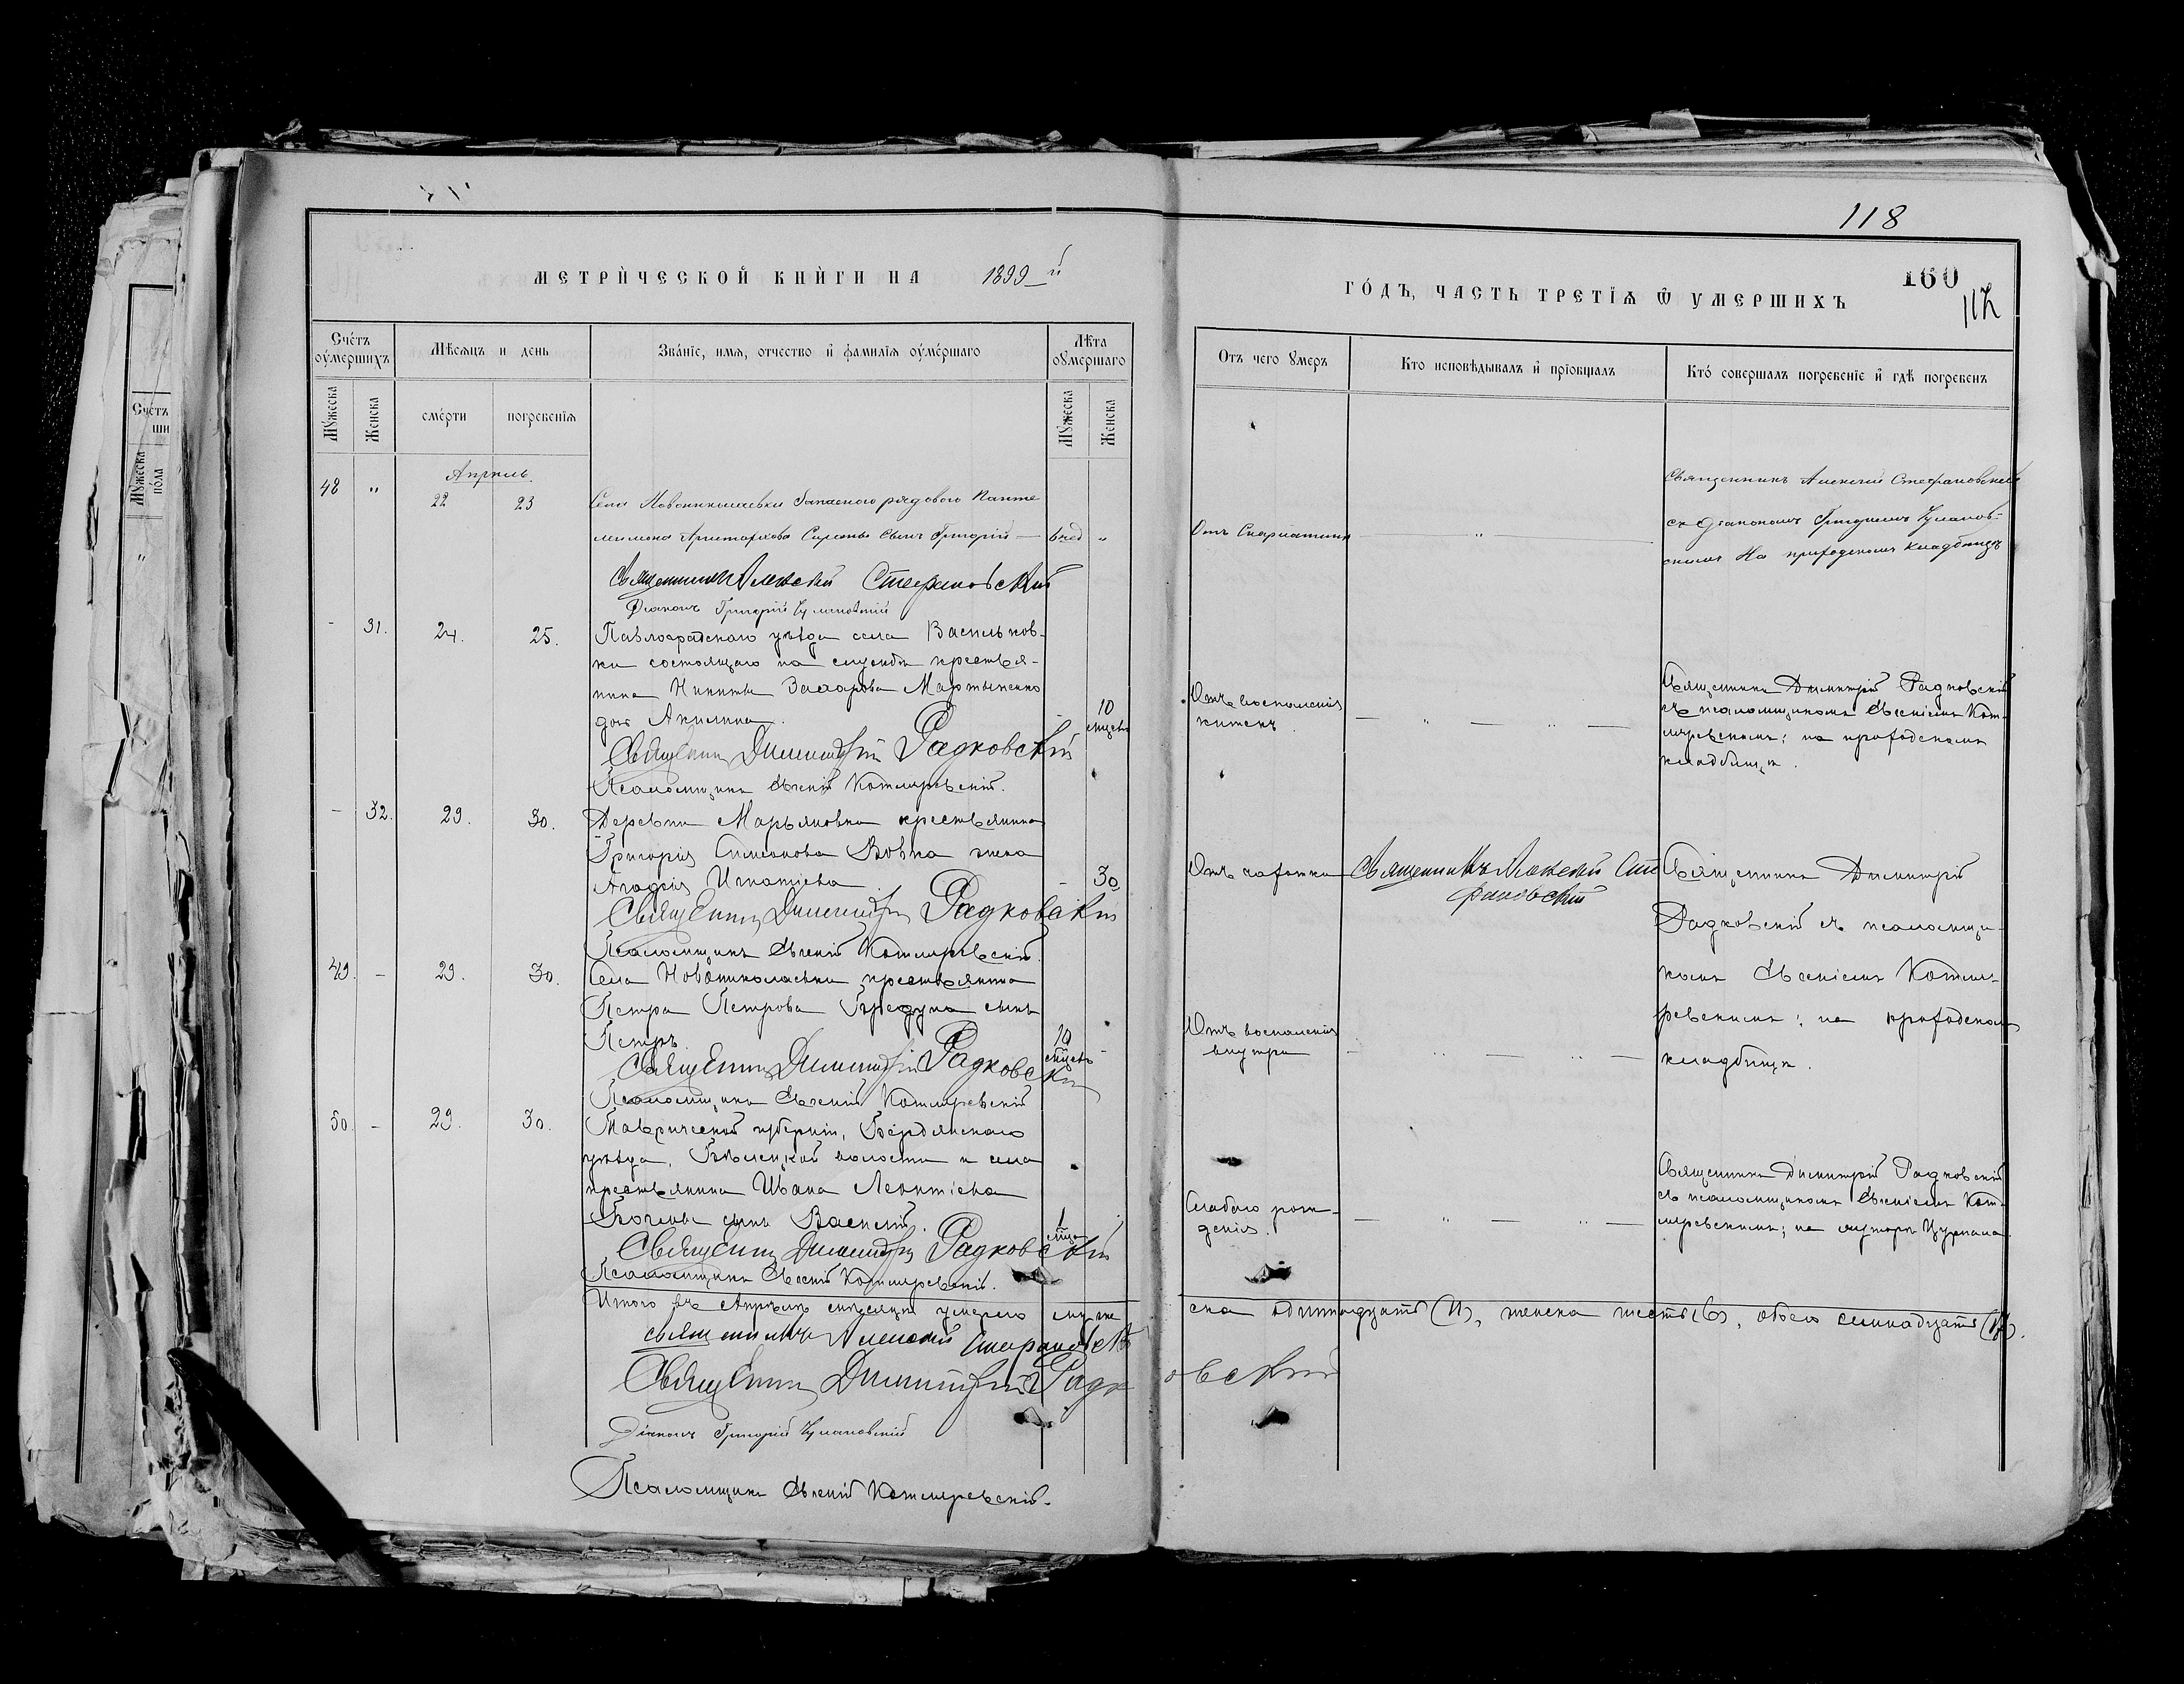 118
МЕТРИ́ЧЕСКОЙ КНИ́ГИ НА 1899 й
ГО́ДЪ, ЧАСТЬ ТРЕТІѦ Ѿ УМЕРШИХЪ
160
117
Сче́тъ оу҆ме́ршихъ
Мѣ́сѧцъ и день
Зва́нїе, имѧ, отчество и҆ фамилїѧ оу҆ме́ршаго
Лѣта оумершаго
Отъ чего ꙋмеръ
Кто исповѣдывалъ и҆ прїобщалъ
Кто́ совершалъ погребенїе и҆ гдѣ погребенъ
Мꙋ́жеска
Женска
сме́рти
погребенїѧ
Мꙋ́жеска
Женска
Апрель.
48 " 22 23
Села Новониколаевки запаснаго рядового Панте
леимона Аристархова сынъ Григорій — 6 нед "
Священникъ Алексій Стефановскій
Діаконъ Григорій Чулановскій
Отъ Скарлатины — " —
Священникъ Алексій Стефановскій
съ діакономъ Григоріемъ Чуланов-
скимъ На приходскомъ кладбищѣ
- 31. 24. 25.
Павлоградскаго уѣзда села Васильков-
ки состоящаго на службѣ крестья-
нина Никиты Захарова Мартыненко
дочь Акилина. - 10 мѣсяц.
Священникъ Димитрій Радковскій
Псаломщикъ Евгеній Котляревскій.
Отъ воспаленія
кишекъ. — " — " —
Священникъ Димитрій Радковскій
съ псаломщикомъ Евгеніемъ Кот-
ляревскимъ; на приходскомъ
кладбищѣ.
- 32. 29. 30.
Деревни Марьяновки крестьянина
Григорія Симеонова Вовка жена
Агафія Игнатіева. - 30
Священникъ Димитрій Радковскій
Псаломщикъ Евгеній Котляревскій.
Отъ чахотки
Священникъ Алексій Сте
фановскій
Священникъ Димитрій
Радковскій съ псаломщи-
комъ Евгеніемъ Котля-
ревскимъ; на приходскомъ
кладбищѣ.
49. - 29. 30.
Села Новониколаевки крестьянина
Петра Петрова сынъ
Петръ. 10 мѣсяц. -
Священникъ Димитрій Радковскій
Псаломщикъ Евгеній Котляревскій
Отъ воспаленія
внутри — " — " —
50. - 29. 30.
Таврической губерніи, Бердянскаго
уѣзда, волости и села
крестьянина Ивана Леонтіева
сынъ Василій. 1 мѣс.
Священникъ Димитрій Радковскій
Псаломщикъ Евгеній Котляревскій.
Слабаго рож-
денія. — " — " —
Священникъ Димитрій Радковскій
съ псаломщикомъ Евгеніемъ Кот-
ляревскимъ; на хуторѣ Цуркана.
Итого въ Апрѣлѣ мѣсяцѣ умерло муже
ска одиннадцать (11), женска шесть (6), обоего семнадцать (17).
священникъ Алексій Стефановскій
Священникъ Димитрій Радковскій
Діаконъ Григорій Чулановскій
Псаломщикъ Евгеній Котляревскій.
Сче́тъ
ши
Мꙋ́жеска
по́ла
"